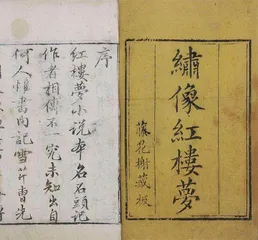 繡像紅樓夢
藤花榭藏板
序
紅樓夢小說本名石頭記
作者相傳不一究未知出自
何人惟書內記雪芹曹先